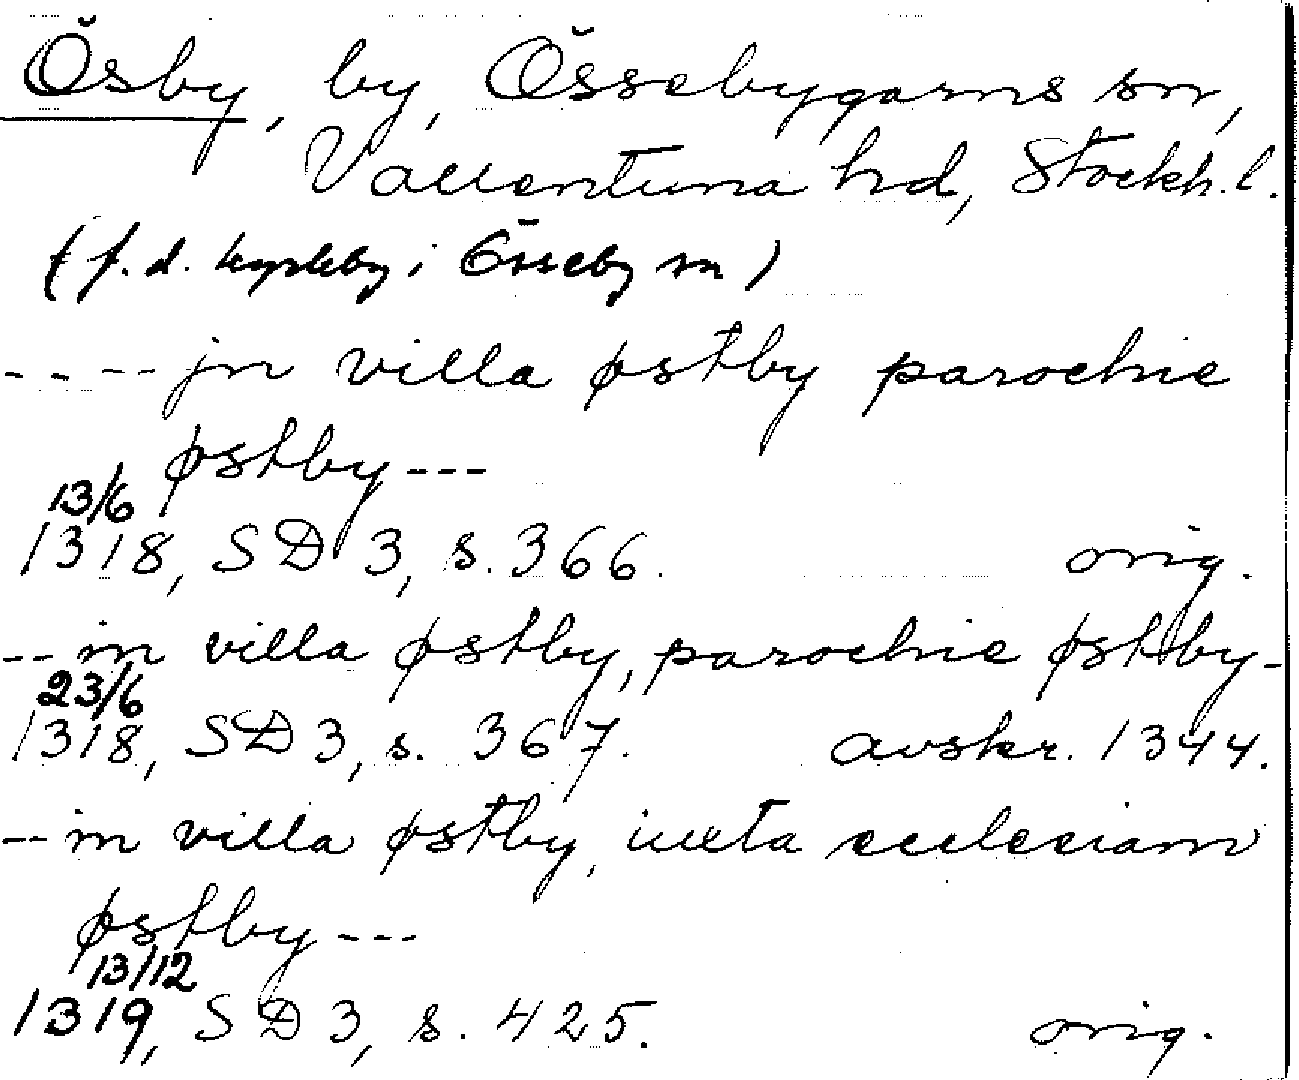 Ösby, by, Össebygarns sn,
Vallentuna hd, Stockh. l.
(f.d. kyrkby i Össeby sn)
---- jn villa østby parochie
østby ---
13/6
1318, SD 3, s. 366. orig.
-- in villa østby, parochie østby -
23/6
1318, SD 3, s. 367. avskr. 1344.
-- in villa østby, iuxta ecclesiam
østby ---
13/12
1319, SD 3, s. 425. orig.